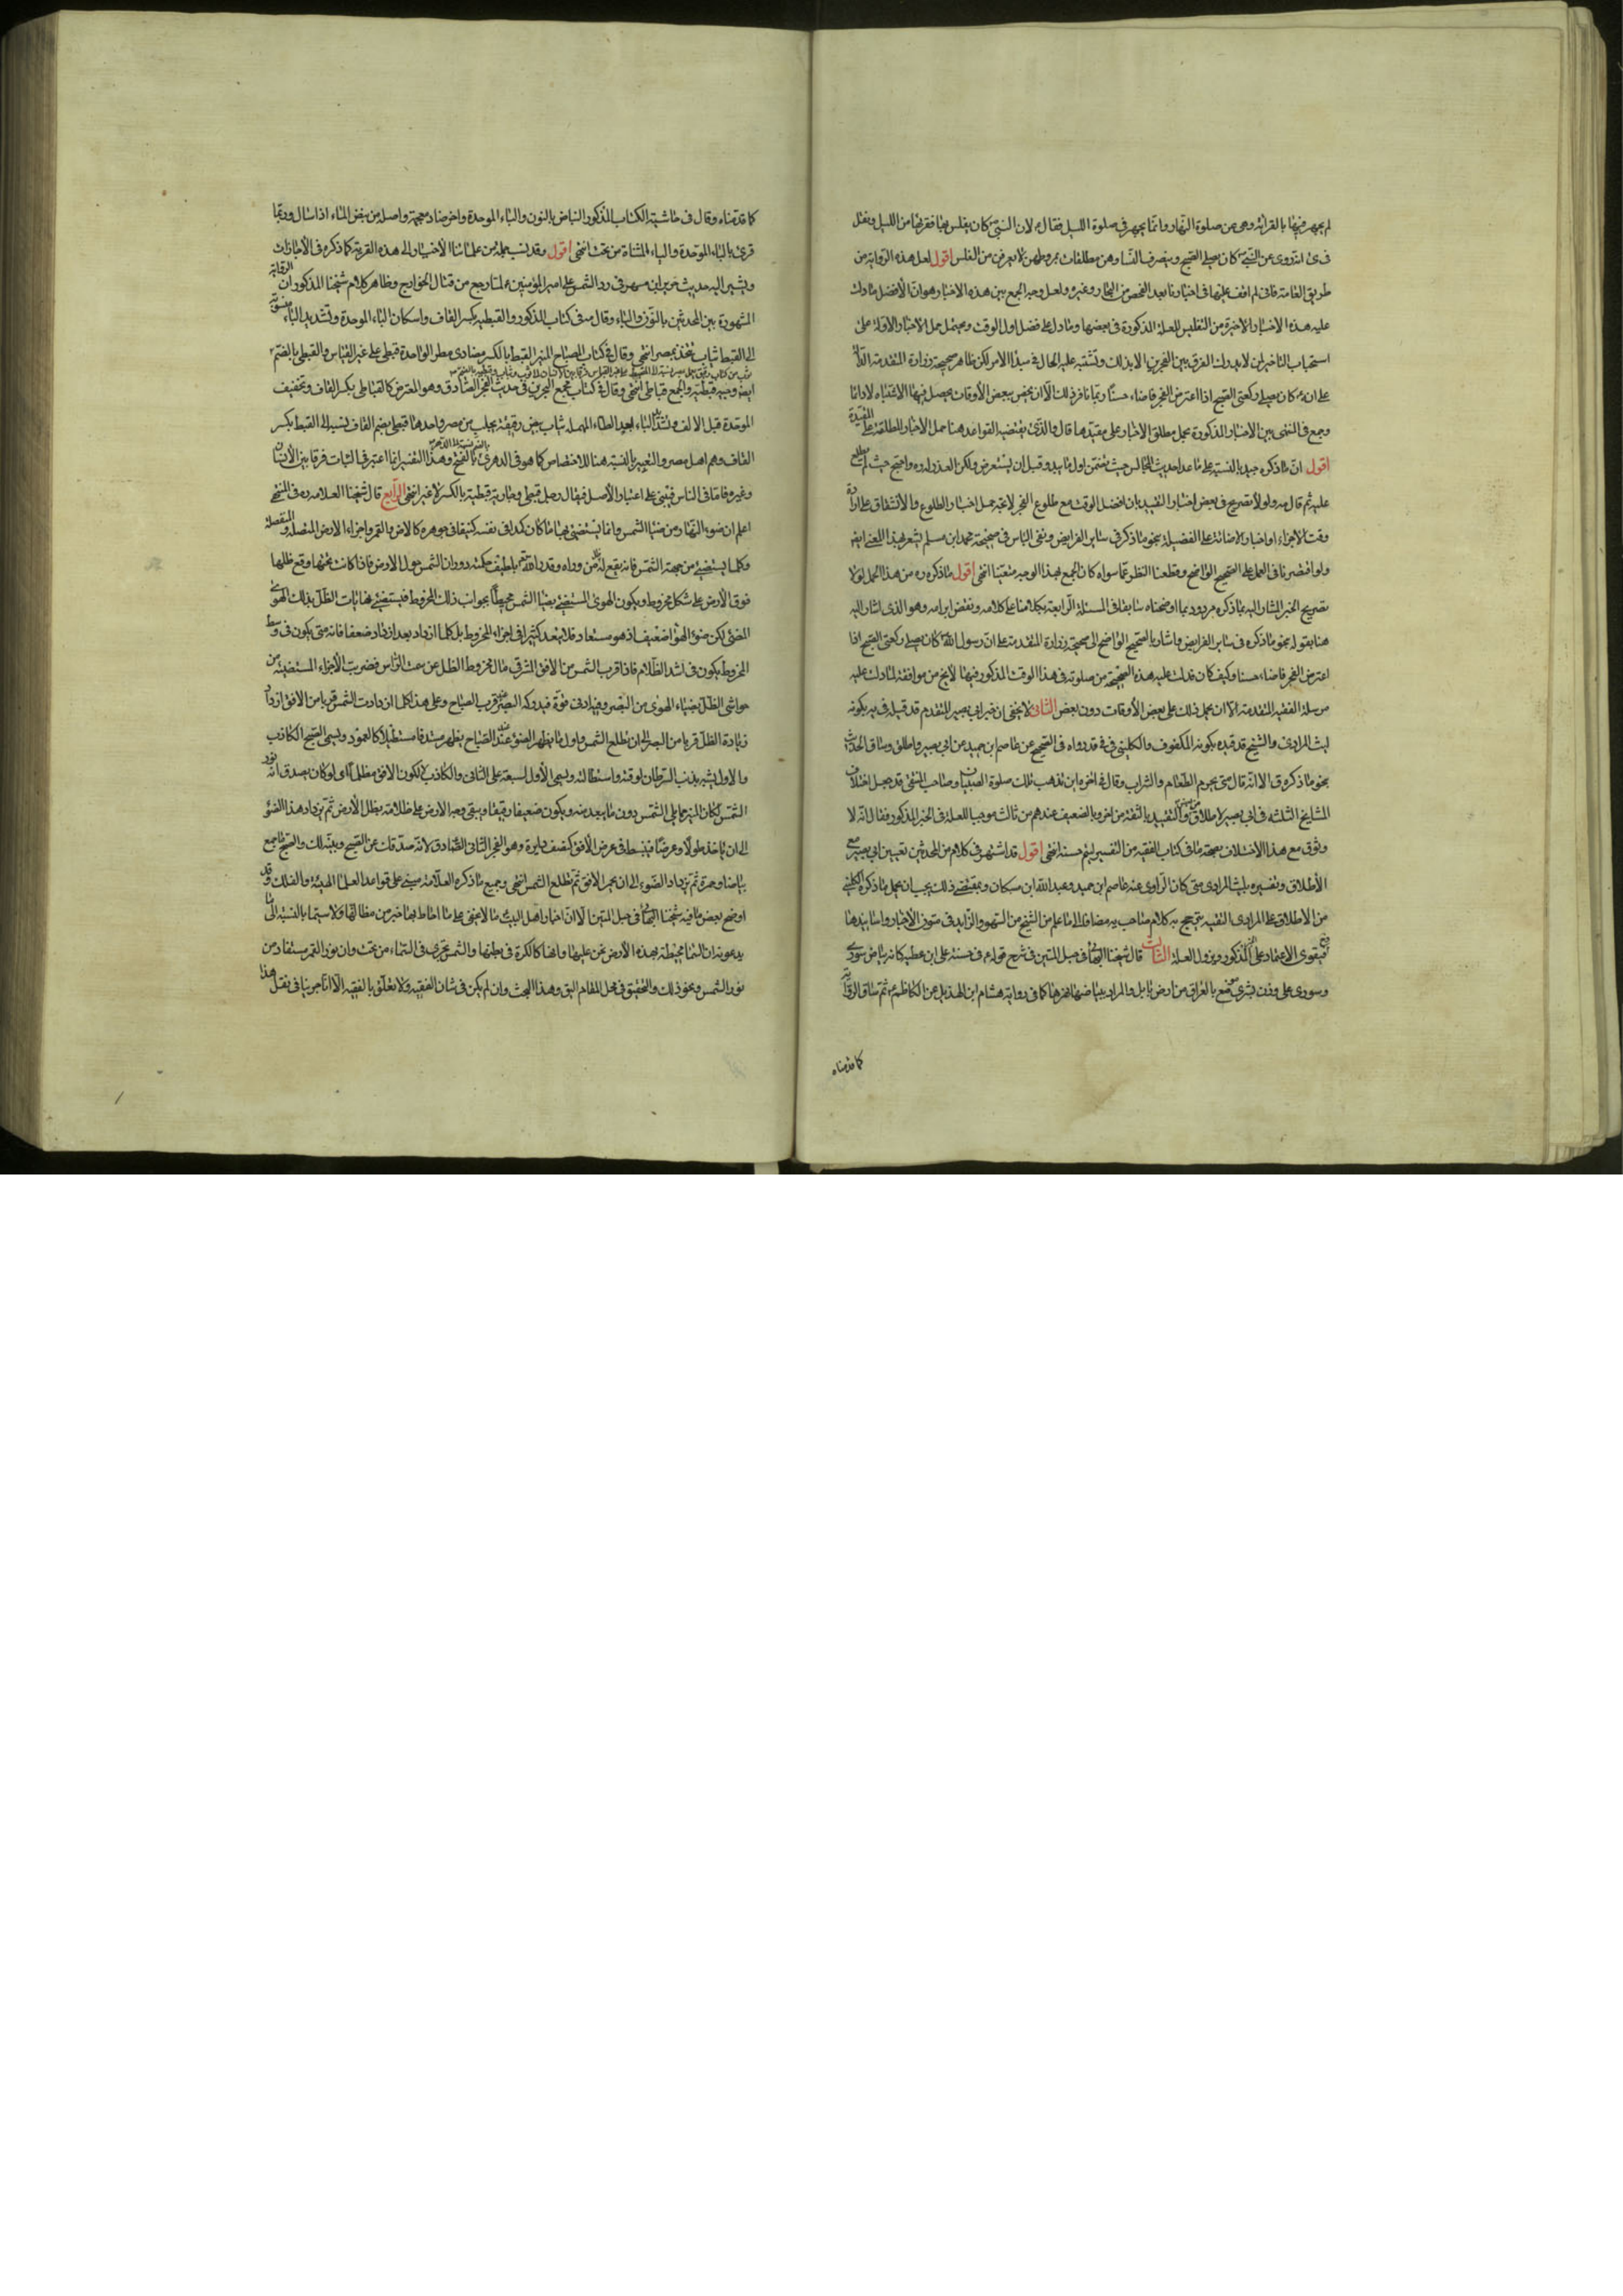 لم يجهر فيها بالقرائة وهى من صلوة النهار وانما يجهر فى صلوة الليل فقال ء لان النبى ص كان يغلس بها فقربها من الليل ونقل
فى ى انه روى عن النبى ص كان يصلى الصبح وينصرف النساء وهن متلفعات بمروطهن لا يعرفن من الغلس اقول لعل هذه الرواية من
طريق العامة فانى لم اقف عليها فى اخبارنا بعد الفحص من البحار وغيره ولعل وجه الجمع بين هذه الاخبار هو ان الافضل ما دلت
عليه هذه الاخبار الاخيرة من التغليس للعلة المذكورة فى بعضها وما دل على فضل اول الوقت ويحتمل حمل الاخبار الاولة على
استحباب التاخير لمن لا يدرك الفرق بين الفجرين الا بذلك وتشتبه عليه الحال فى مبدأ الامر لكن ظاهر صحيحة زرارة المتقدمة الدالة
على انه ص كان يصلى ركعتى الصبح اذا اعترض الفجر فاضاء حسنا ربما نافر ذلك الا ان يخص ببعض الأوقات يحصل فيها الاشتباه لا دائما
وجمع فى المنتهى بين الاخبار المذكورة بحمل مطلق الاخبار على مقيدها قال والذى يقتضيه القواعد هنا حمل الاخبار المطلقة على المقيدة
اقول ان ما ذكره جيد بالنسبة الى ما عدا حديث المجالس حيث تضمن اول ما يبدو قبل ان يستعرض ولكن العذر له ره واضح حيث لم يطلع
عليه ثم قال ره ولو لا تصريح فى بعض اخبار التقييد بان افضل الوقت مع طلوع الفجر لاتجه حمل اخبار الطلوع والانشقاق على ارادة
وقت الاجزاء واخبار الاضائة على الفضيلة بنحو ما ذكر فى سائر الفرايض ونفى الباس فى صحيحة محمد ابن مسلم يشعر بهذا المعنى ايضا
ولو اقتصرنا فى العمل على الصحيح الواضح وقطعنا النظر عما سواه كان الجمع بهذا الوجه متعينا انتهى اقول ما ذكره ره من هذا الحمل لولا
تصريح الخبر المشار اليه بما ذكره مردود بما اوضحناه سابقا فى المسئلة الرابعة بكلامنا على كلامه ونقض ابرامه وهو الذى اشار اليه
هنا بقوله بنحو ما ذكره فى سائر الفرايض واشار بالصحيح الواضح الى صحيحة زرارة المتقدمة على ان رسول الله ص كان يصلى ركعتى الصبح اذا
اعترض الفجر فاضاء حسنا وكيف كان فدلت عليه هذه الصحيحة من صلوته فى هذا الوقت المذكور فيها لا يخ من موافقة لما دلت عليه
مرسلة الفقيه المتقدمة الا ان يحمل ذلك على بعض الأوقات دون بعض الثانى لا يخفى ان خبر ابى بصير المتقدم قد قيده فى يه بكونه
ليث المرادى والشيخ قد قيده بكونه المكفوف والكلينى فى فى قد رواه فى الصحيح عن عاصم ابن حميد عن ابى بصير واطلق وساق الحديث
بنحو ما ذكره فى الا انه قال متى يحرم الطعام والشراب وقال فى اخره اين تذهب تلك صلوة الصبيان وصاحب المنتقى قد جعل اختلاف
المشايخ الثلثة فى ابى بصير بالاطلاق والتقييد بالثقة من اخر وبالضعيف عندهم من ثالث موجبا للعلة فى الخبر المذكور فقال انه لا
وثوق مع هذا الاختلاف بصحة ما فى كتاب الفقيه من التفسير ليتم حسنه انتهى اقول قد اشتهر فى كلام من المحدثين تعيين ابى بصير مع
الأطلاق وتفسيره بليث المرادى متى كان الراوى عنه عاصم ابن حميد وعبد الله ابن مسكان وبمقتضى ذلك يجب ان يحمل ما ذكره الكلينى
من الاطلاق على المرادى الثقة بترجيح كلام صاحب يه مضافا الى ما علم من الشيخ من السهو الزايد فى متون الاخبار واسانيدها
فيقوى الاعتماد على المذكور ويزول العلة الثالث قال شيخنا البهائى فى حبل المتين فى شرح قوله ء فى حسنة على ابن عطية كانه بياض سورى
وسورى على وزن بشرى موضع بالعراق من ارض بابل والمراد ببياضها نهرها كما فى رواية هشام ابن الهذيل عن الكاظم ء ثم ساق الرواية
كما قدمناه
كما قدمناه وقال فى حاشية الكتاب المذكور النباض بالنون والباء الموحدة واخره ضاد معجمة واصله من نبض الماء اذا سال وربما
قرئ بالباء الموحدة والياء المثناة من تحت انتهى اقول وقد نسب جملة من علمائنا الأخبار الى هذه القرية كما ذكره فى الاجازات
ويشير اليه حديث جويرية ابن مسهر فى رد الشمس على امير المؤمنين ء لما رجع من قتال الخوارج وظاهر كلام شيخنا المذكور ان الرواية
المشهورة بين المحدثين بالنون والباء وقال ره فى كتاب المذكور والقبطية بكسر القاف واسكان الباء الموحدة وتشديد الياء منسوبة
الى القبط ثياب تتخذ بمصر انتهى وقال فى كتاب المصباح المنير القبط بالكسر نصارى مصر الواحدة قبطى على غير القياس والقبطى بالضم
ثوب من كتان رقيق يعمل بمصر نسبة الى القبط على غير القياس فرقا بين الانسان والثوب وثياب قبطية بالضم
ايضا وجبة قبطية والجمع قباطى انتهى وقال فى كتاب مجمع البحرين فى حديث الفجر الصادق وهو المعترض كالقباطى بكسر القاف وتخفيف
الموحدة قبل الالف وتشديد الياء بعد الطاء المهملة ثياب بيض رقيقة يجلب من مصر واحدها قبطى بضم القاف نسبة الى القبط بكسر
القاف وهم اهل مصر والتغيير بالنسبة هنا للاختصاص كما هو فى الدهرى بالضم نسبة الى الدهر بالفتح وهذا التغيير انما اعتبر فى الثياب فرقا بين الانسان
وغيره فاما فى الناس فيبنى على اعتبار الأصل فيقال رجل قبطى وجارية قبطية بالكسر لا غير انتهى الرابع قال شيخنا العلامة ره فى المنتهى
اعلم ان ضوء النهار من ضياء الشمس وانما يستضئ بها ما كان كمدا فى نفسه كثيفا فى جوهره كالارض والقمر واجزاء الارض المتصلة والمنفصلة
وكلما يستضئ من جهة الشمس فانه يقع له ظل من ورائه وقدر الله تعالى بلطيف حكمته دوران الشمس حول الارض فاذا كانت تحتها وقع ظلها
فوق الأرض على شكل مخروط ويكون الهواء المستضئ بضياء الشمس محيطا بجوانب ذلك المخروط فيستضئ نهايات الظل بذلك الهواء
المضئ لكن ضوء الهواء ضعيف اذ هو مستعار فلا ينفذ كثيرا فى اجزاء المخروط بل كلما ازداد بعدا ازداد ضعفا فانه متى يكون فى وسط
المخروط يكون فى اشد الظلام فاذا قرب الشمس من الافق الشرقى مال مخروط الظل عن سمت الرأس فضربت الأجزاء المستضيئة من
حواشى الظل بضياء الهواء من البصر وفيه ادنى قوة فيدركه البصر عند قرب الصباح وعلى هذا كلما ازدادت الشمس قربا من الافق ازداد
زيادة الظل قربا من البصر الى ان تطلع الشمس واول ما يظهر الضوء عند الصباح يظهر مستدقا مستطيلا كالعمود ويسمى الصبح الكاذب
والاول يشبه بذنب السرطان لدقته واستطالته ويسمى الأول لسبقه على الثانى والكاذب لكون الافق مظلما اى لو كان يصدق انه نور
الشمس لكان المنير مما يلى الشمس دون ما يبعد منه ويكون ضعيفا دقيقا ويبقى وجه الارض على ظلامه بظل الأرض ثم يزداد هذا الضوء
الى ان ياخذ طولا وعرضا فينبسط فى عرض الافق كنصف دايرة وهو الفجر الثانى الصادق لانه صدقك عن الصبح وبينه لك والصبح ما جمع
بياضا وحمرة ثم يزداد الضوء الى ان يحمر الافق ثم تطلع الشمس انتهى وجميع ما ذكره العلامة مبنى على قواعد العلماء الهيئة والفلك وقد
اوضح بعض ما فيه شيخنا البهائى فى حبل المتين الا ان اخبار اهل البيت ء مما لا يخفى على ما احاط بها خبرا من مطالبها ولا سيما بالنسبة الى ما
يدعونه ان السماء محيطة بهذه الأرض نحن عليها وانها كالكرة فى بطنها والشمس تجرى فى السماء من تحت وان نور القمر مستفاد من
نور الشمس ونحو ذلك والتحقيق فى محل المقام اليق وهذا البحث وان لم يكن فى شان الفقيه ولا تعلق بالفقيه الا انا جرينا فى نقل هذا